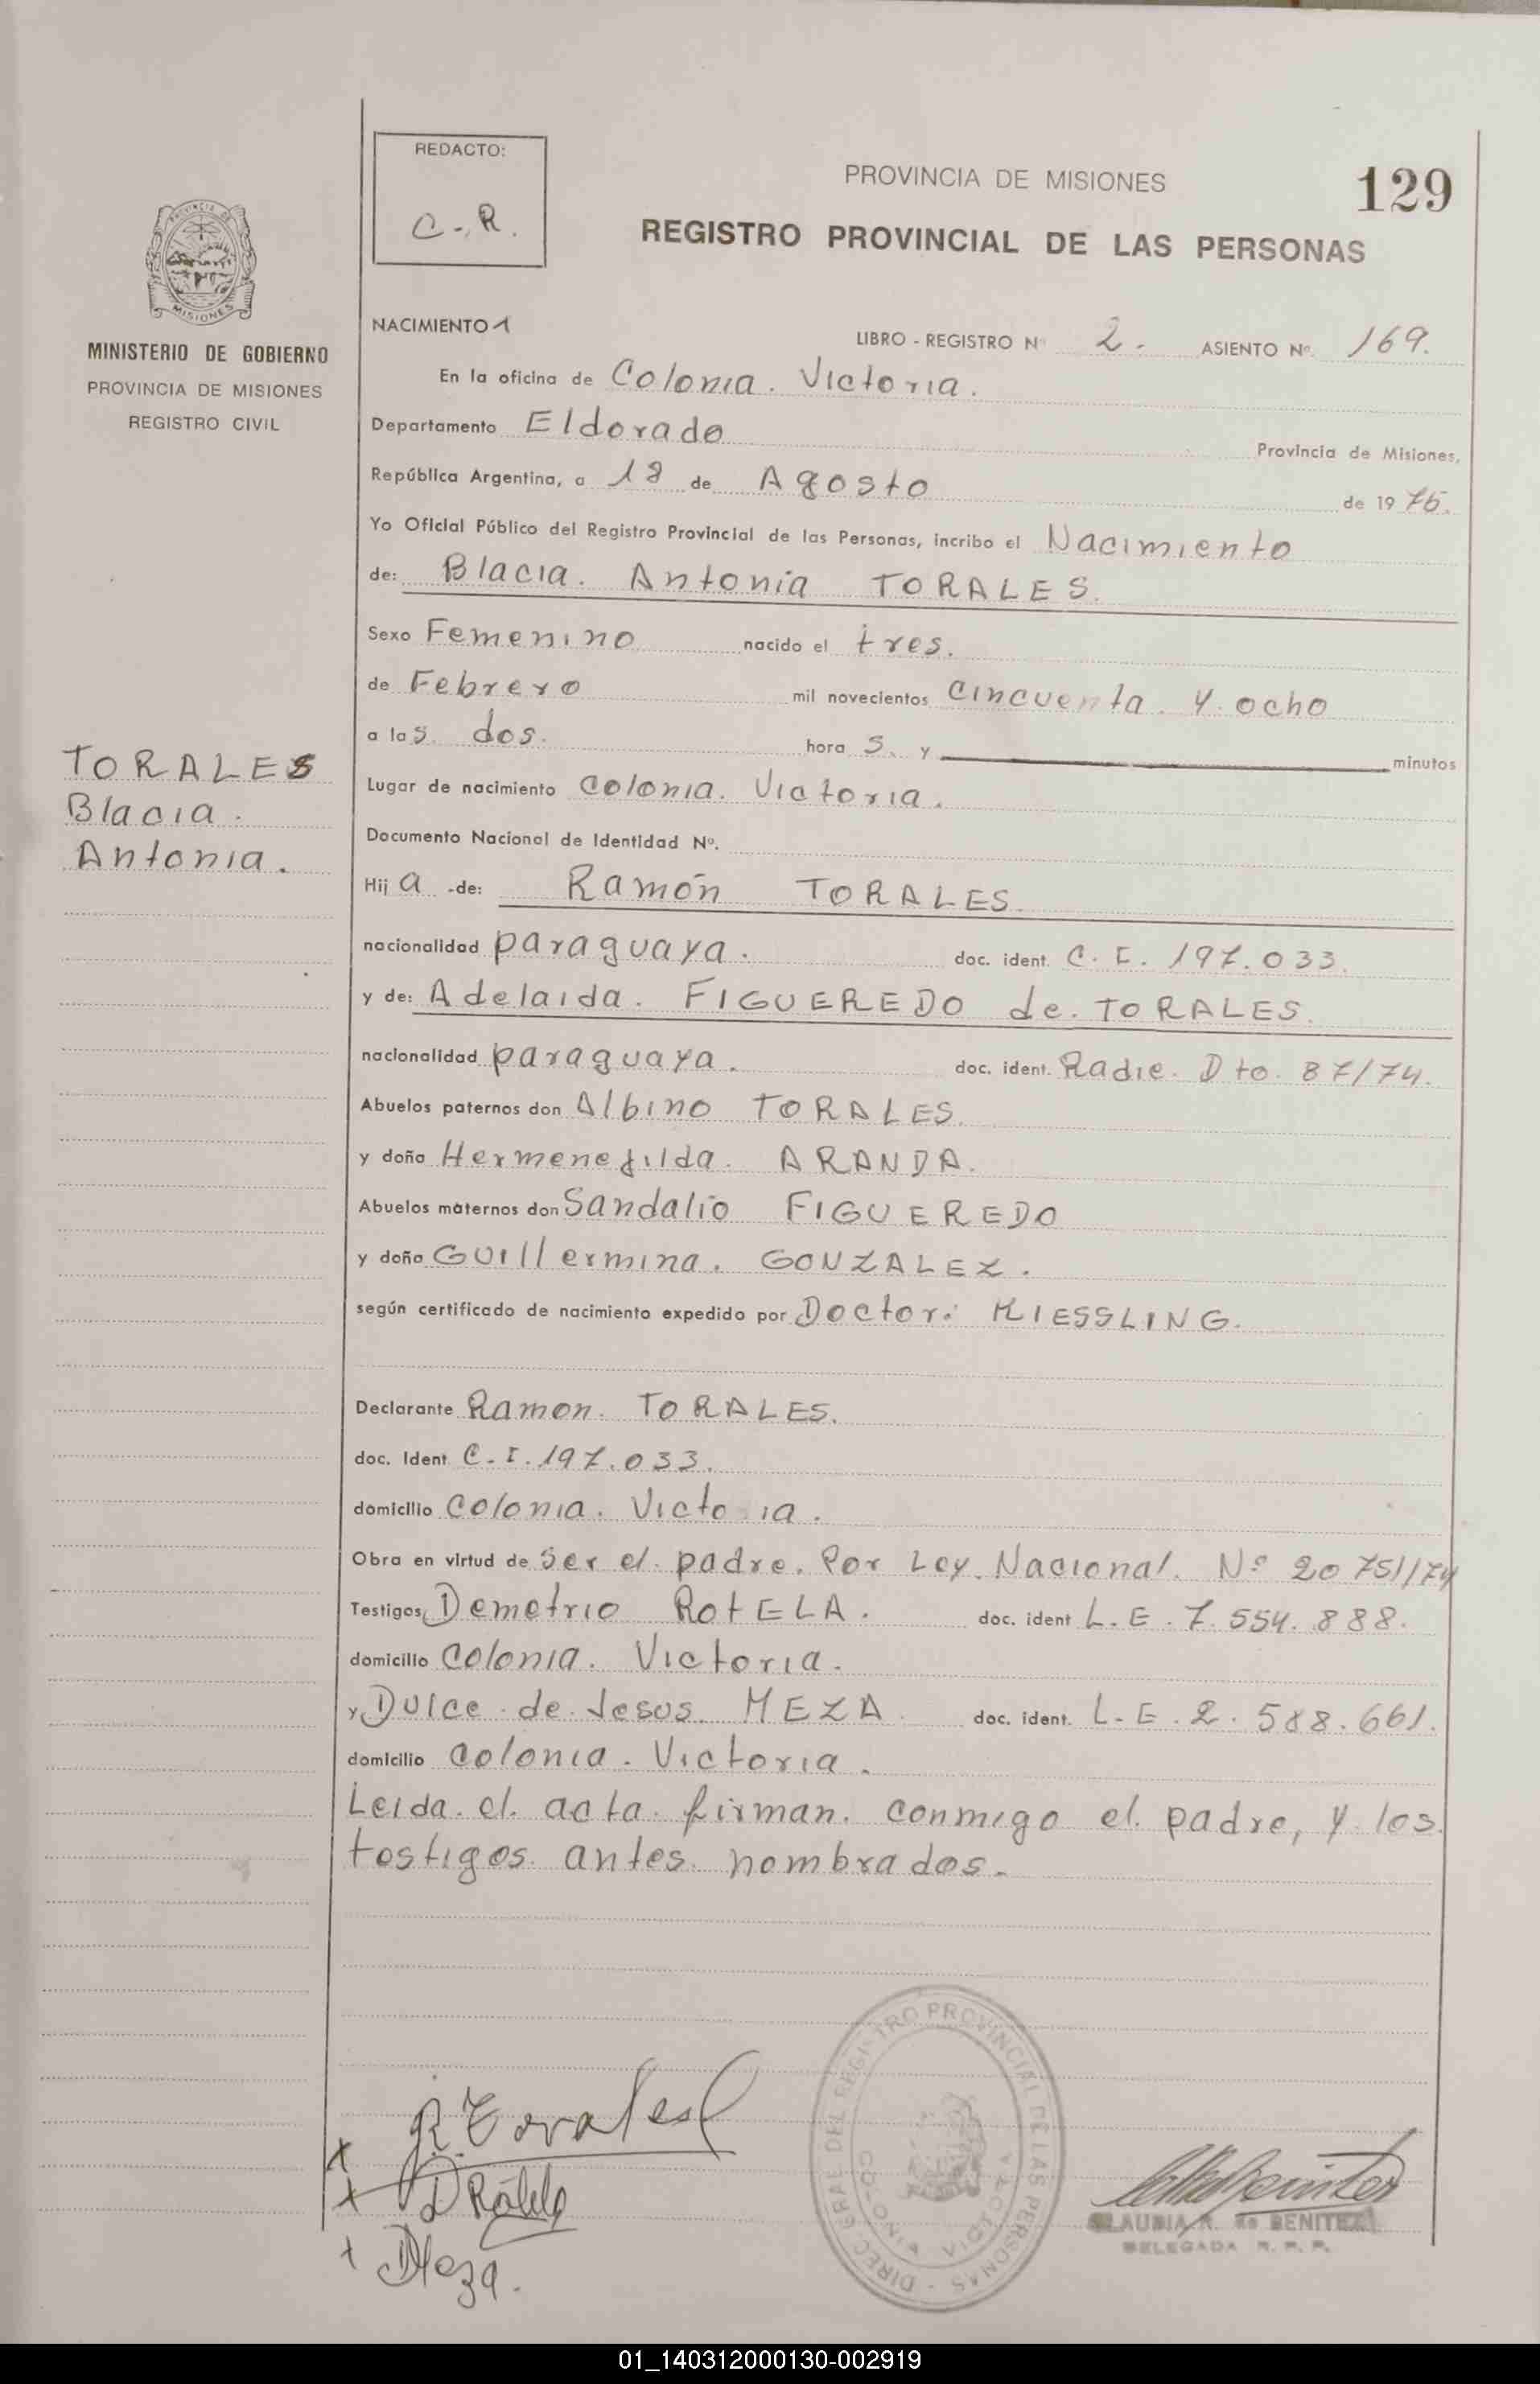 REDACTO:
C-.R.
PROVINCIA DE MISIONES
129
REGISTRO PROVINCIAL DE LAS PERSONAS
MISIONES
MINISTERIO DE GOBIERNO
PROVINCIA DE MISIONES
REGISTRO CIVIL
NACIMIENTO 1
LIBRO - REGISTRO Nº 2. ASIENTO Nº. 169.
En la oficina de Colonia. Victoria.
Departamento Eldorado Provincia de Misiones,
República Argentina, a 18 de Agosto de 1975.
Yo Oficial Público del Registro Provincial de las Personas, incribo el Nacimiento
de: Blacia. Antonia TORALES.
Sexo Femenino nacido el tres.
de Febrero mil novecientos cincuenta. y. ocho
a las. dos. hora s. y minutos
TORALES
Blacia.
Antonia.
Lugar de nacimiento Colonia. Victoria.
Documento Nacional de Identidad Nº.
Hij a -de: Ramón TORALES.
nacionalidad paraguaya. doc. ident. C. I. 197.033.
y de: Adelaida. FIGUEREDO de. TORALES.
nacionalidad paraguaya. doc. ident. Radic. Dto. 87/74.
Abuelos paternos don Albino TORALES.
y doña Hermenegilda. ARANDA.
Abuelos maternos don Sandalio FIGUEREDO
y doña Guillermina. GONZALEZ.
según certificado de nacimiento expedido por Doctor: KIESSLING.
Declarante Ramon. TORALES.
doc. Ident. C.I. 197.033.
domicilio Colonia. Victoria.
Obra en virtud de ser el. padre. Por Ley. Nacional. Nº 20751/74
Testigos, Demetrio RotELA. doc. ident L.E. 7.554.888.
domicilio Colonia. Victoria.
y Dulce de Jesus. MEZA doc. ident. L.E. 2.588.661.
domicilio Colonia. Victoria.
Leida. el. acta. firman. conmigo el. padre, y los.
testigos. antes. nombrados.
R. Torales
D Rotela
DMeza.
DIREC. GRAL DEL REGISTRO PROVINCIAL DE LAS PERSONAS
VICTORIA
CLAUDIA R. de BENITEZ
DELEGADA R. P. P.
01_140312000130-002919